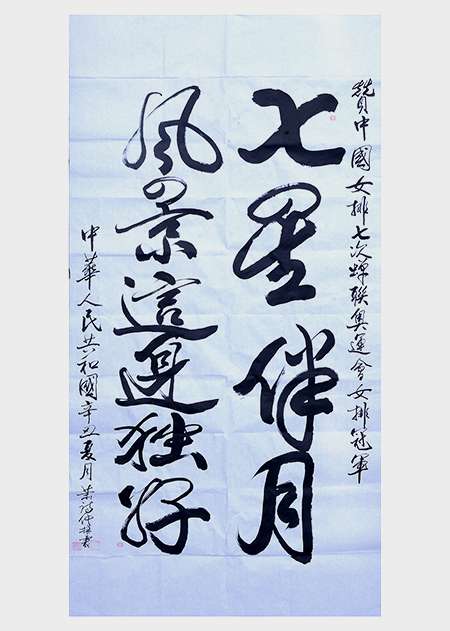 贊中國女排七次蟬联奥運會女排冠軍
七星伴月
风景這邊独好
中華人民共和國辛丑夏月